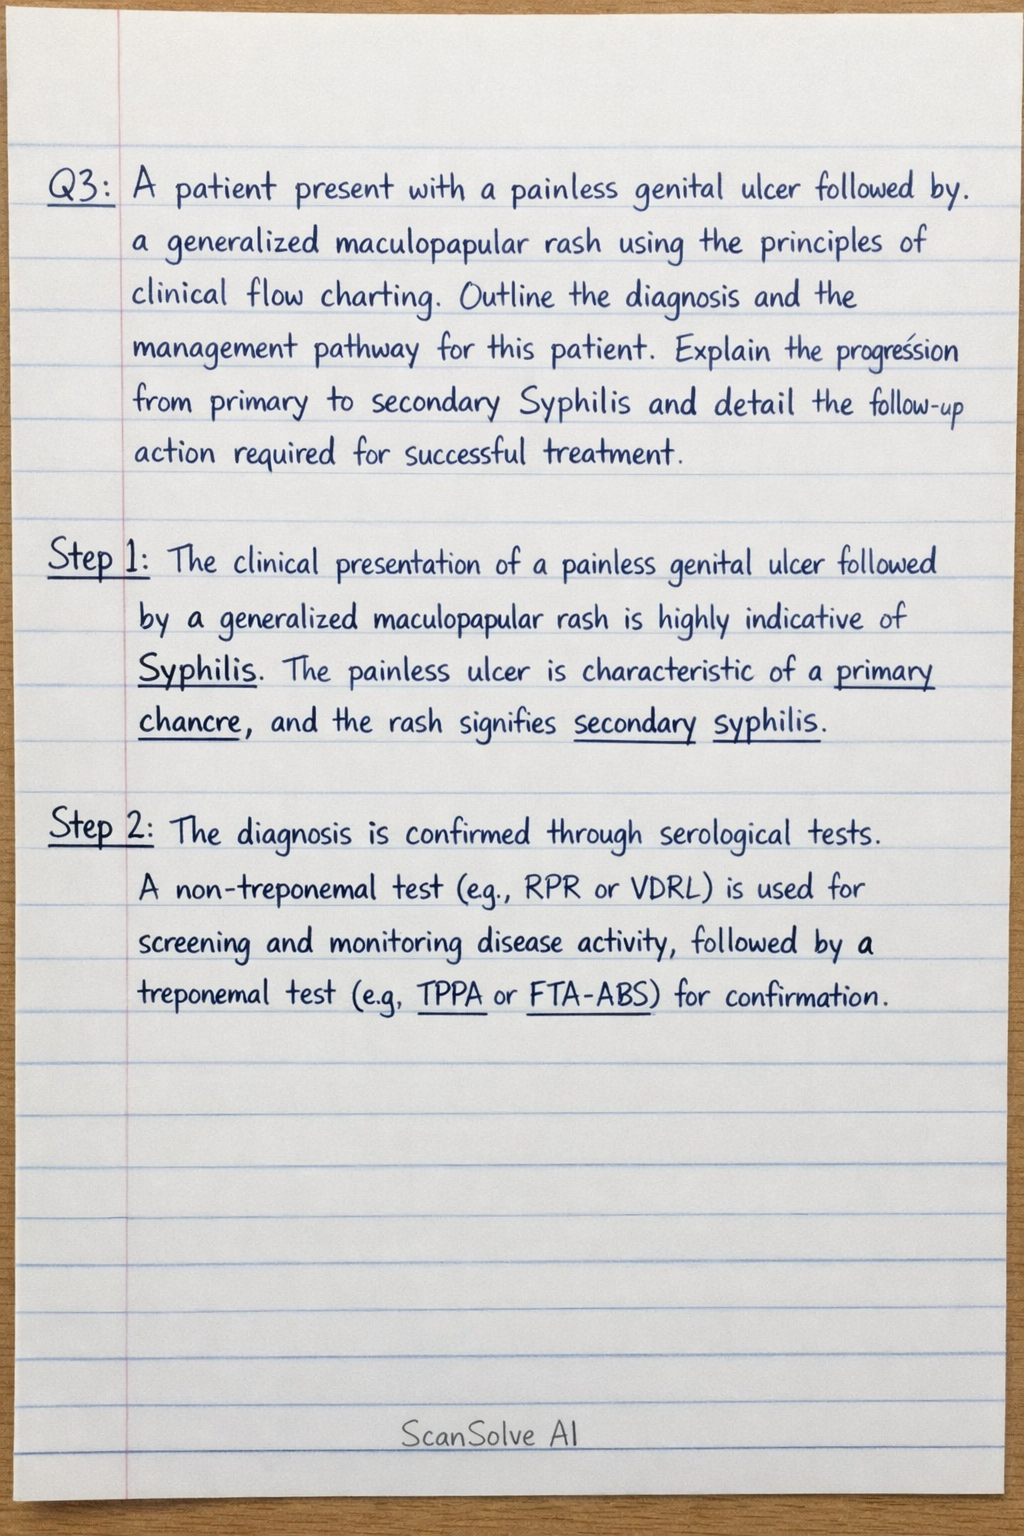 Q3: A patient present with a painless genital ulcer followed by.
a generalized maculopapular rash using the principles of
clinical flow charting. Outline the diagnosis and the
management pathway for this patient. Explain the progression
from primary to secondary Syphilis and detail the follow-up
action required for successful treatment.
Step 1: The clinical presentation of a painless genital ulcer followed
by a generalized maculopapular rash is highly indicative of
Syphilis. The painless ulcer is characteristic of a primary
chancre, and the rash signifies secondary syphilis.
Step 2: The diagnosis is confirmed through serological tests.
A non-treponemal test (e.g., RPR or VDRL) is used for
screening and monitoring disease activity, followed by a
treponemal test (e.g, TPPA or FTA-ABS) for confirmation.
ScanSolve AI